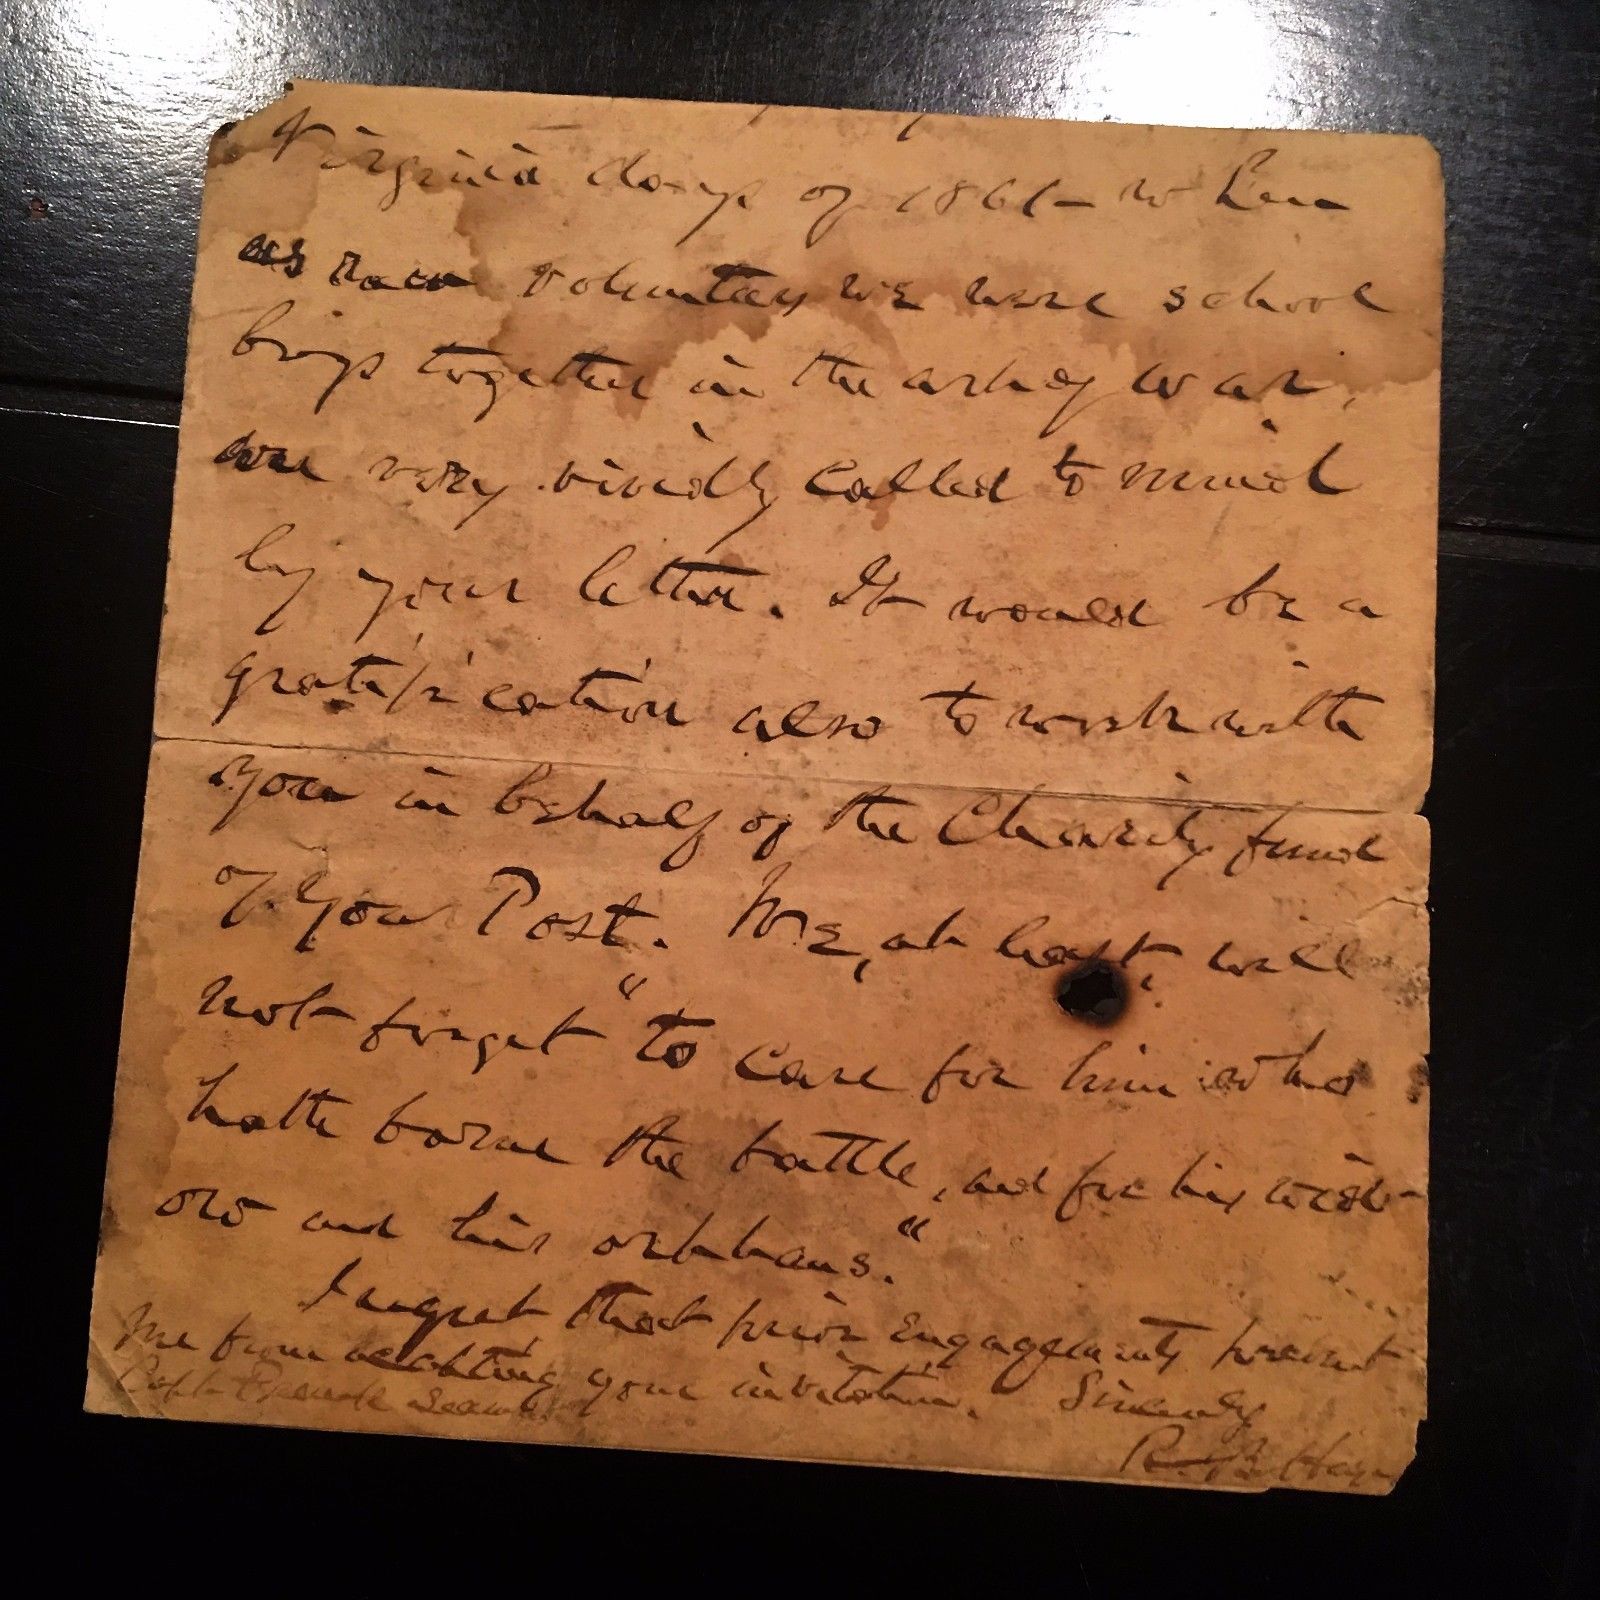 Virginia days of 1861 - when
as raw voluntary we were school
boys together in the art of war,
are very vividly called to mind
by your letter. It would be a
gratification also to work with
you in behalf of the Charity fund
of your Post. We, at least, will
not forget "to care for him who
hath borne the battle, and for his wid-
ow and his orphans."
I regret that prior engagements prevent
me from accepting your invitation. Sincerely
R. B. Hayes
Capt